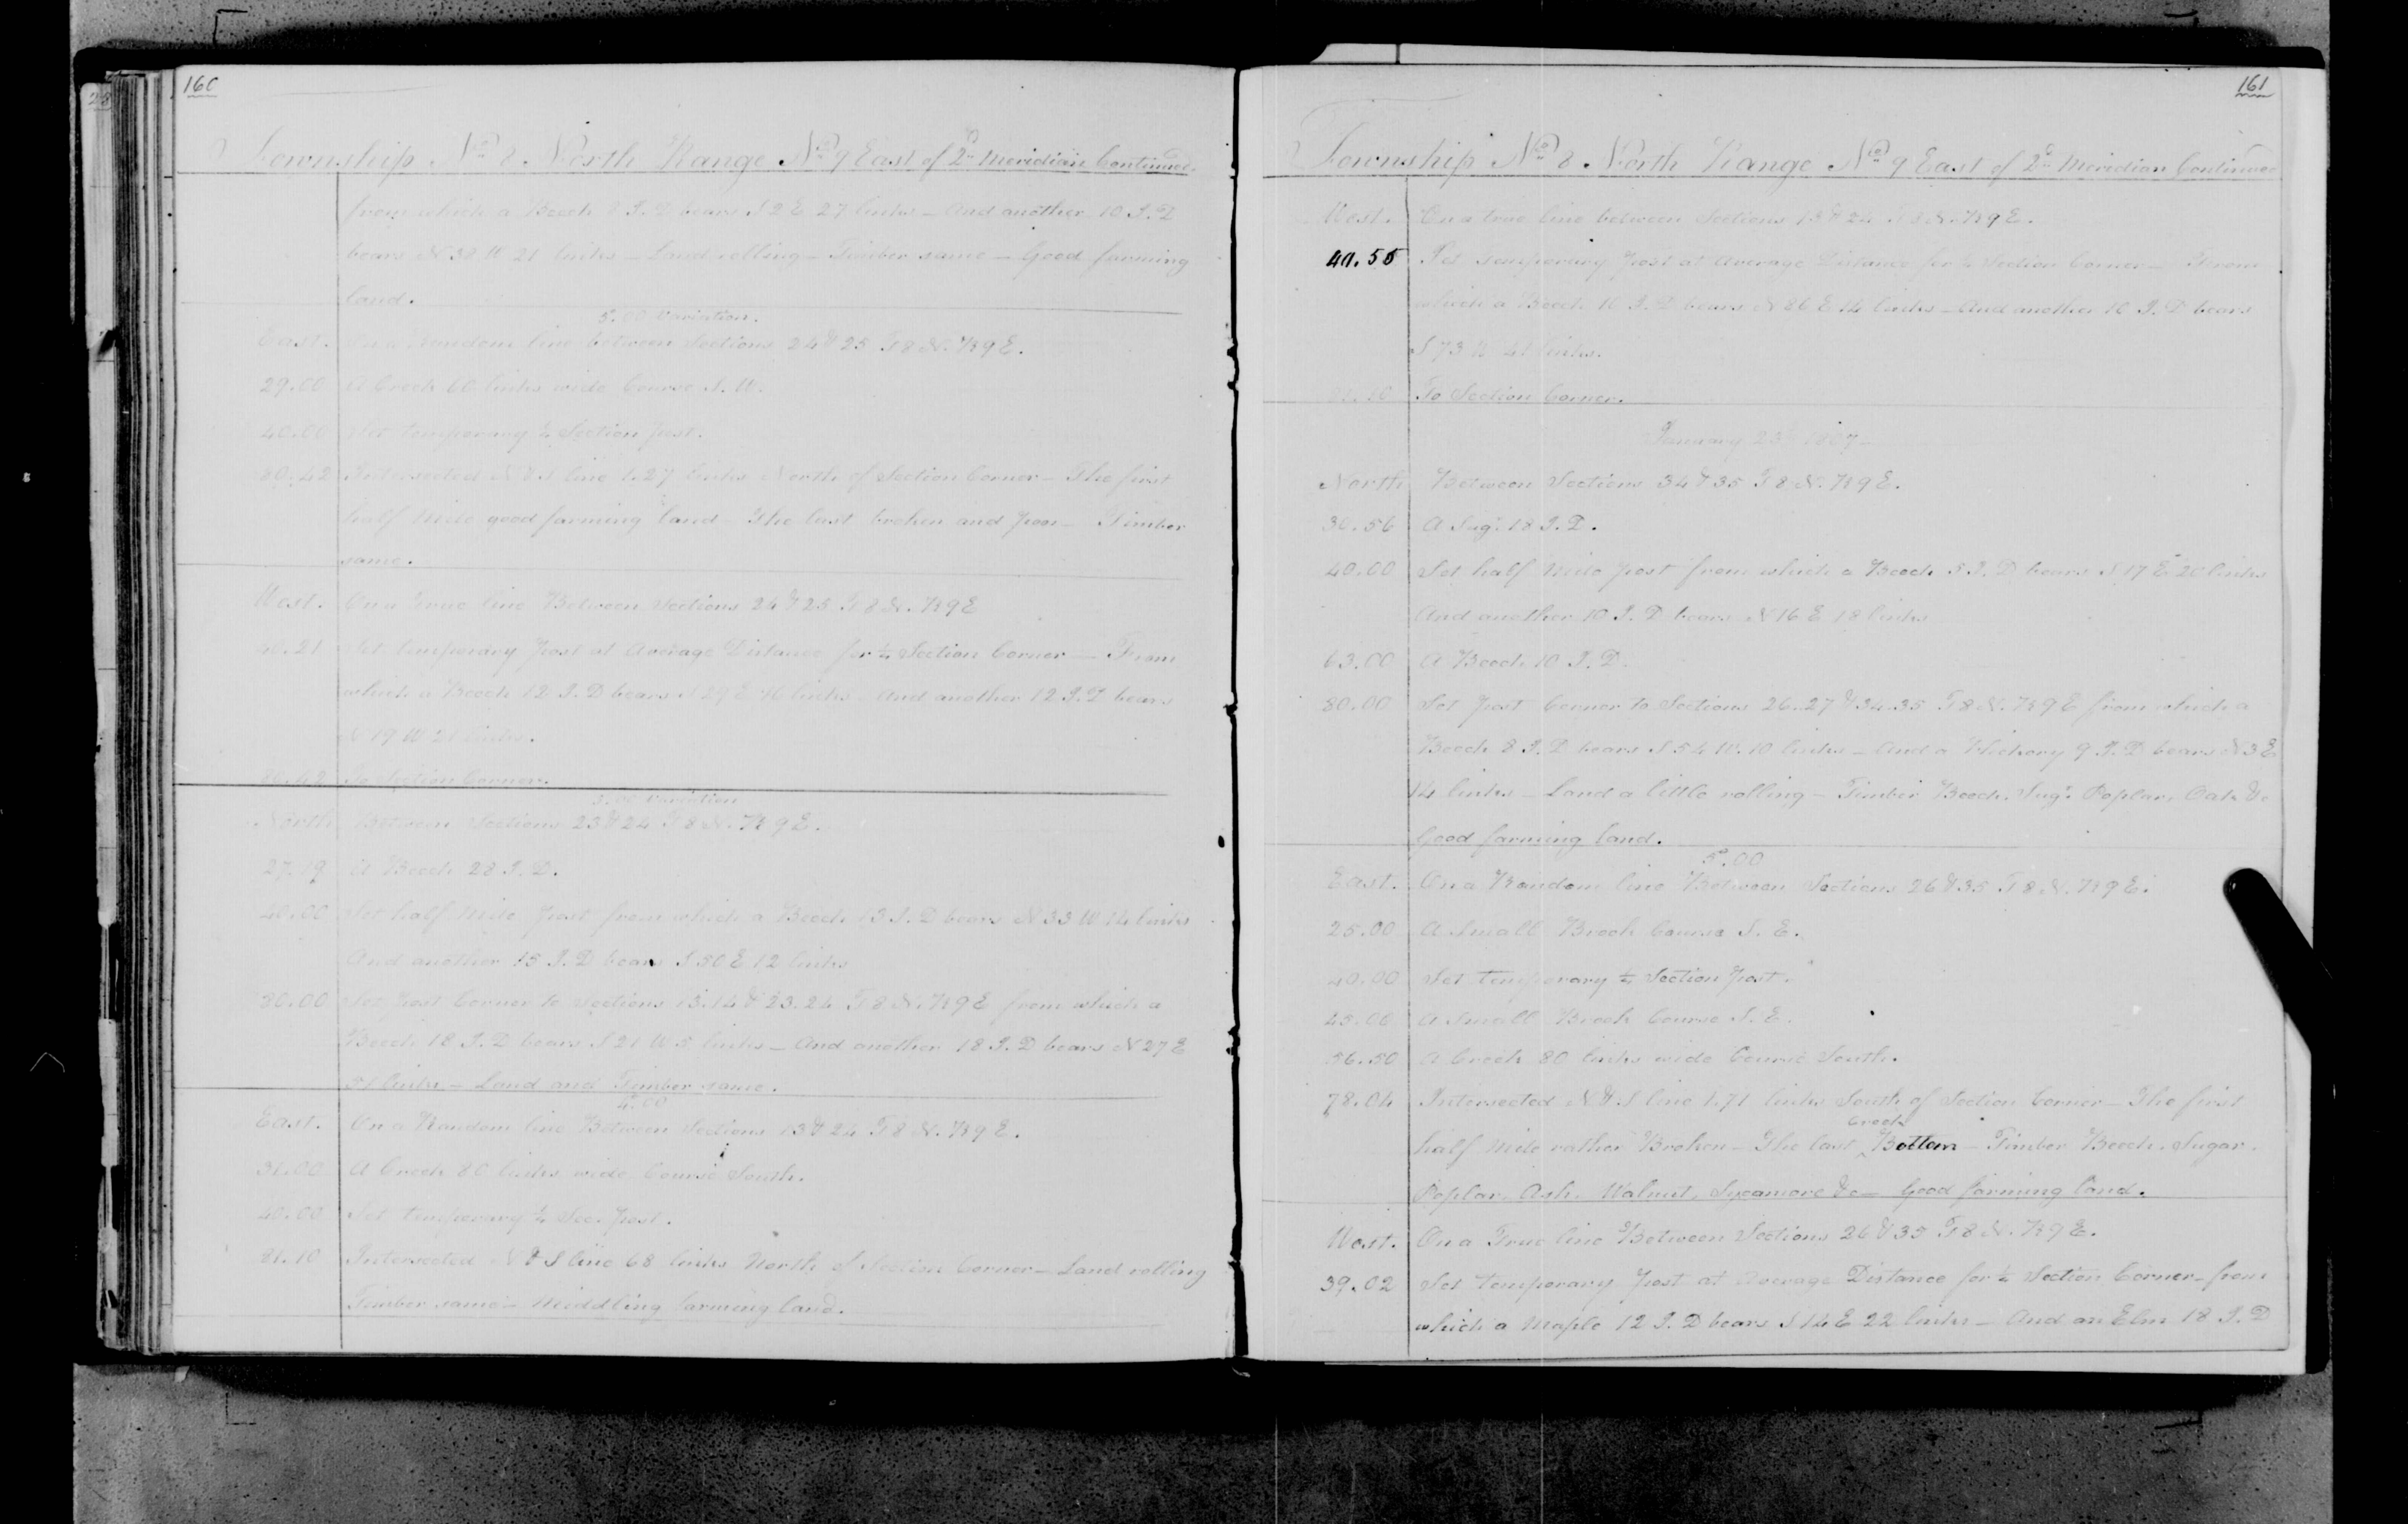 160
Township No 8 North Range No 9 East of 2d Meridian Continued
from which a Beech 8 I. D bears S 2 E 27 links – And another 10 I. D
bears N 38 W 21 links – Land rolling – Timber same – Good farming
land.
5°.00 Variation.
East. On a Random line between Sections 24 & 25 T 8 N. R 9 E.
29.00 A Creek 60 links wide Course S. W.
40.00 Set temporary ¼ Section post.
80.42 Intersected N & S line 1.27 links North of Section Corner – The first
half Mile good farming land – The last broken and poor – Timber
same.
West. On a True line Between Sections 24 & 25 T 8 N. R 9 E
40.21 Set temporary post at Average Distance for ¼ Section Corner – From
which a Beech 12 I. D bears S 24 E links – And another 12 I. D bears
N 19 W 21 links.
80.42 To Section Corner.
5.00 Variation
North Between Sections 23 & 24 T 8 N. R 9 E.
27.19 A Beech 28 I. D.
40.00 Set half Mile post from which a Beech 13 I. D bears N 33 W 14 links
And another 15 I. D bears S 50 E 12 links
80.00 Set post Corner to Sections 13.14 & 23.24 T 8 N. R 9 E from which a
Beech 18 I. D bears S 21 W 5 links – And another 18 I. D bears N 27 E
51 links – Land and Timber same.
4°.00
East. On a Random line Between Sections 13 & 24 T 8 N. R 9 E.
31.00 A Creek 80 links wide Course South.
40.00 Set temporary ¼ Sec. post.
81.10 Intersected N & S line 68 links North of Section Corner – Land rolling
Timber same – Middling farming land.
161
Township No 8 North Range No 9 East of 2d Meridian Continued
West. On a true line between Sections 13 & 24 T 8 N. R 9 E.
40.55 Set Temporary post at Average Distance for ¼ Section Corner – From
which a Beech 10 I. D bears N 86 E 14 links – And another 10 I. D bears
S 73 W 41 links.
To Section Corner.
January 23 1807 –
North Between Sections 34 & 35 T 8 N. R 9 E.
30.56 A Sugr 18 I. D.
40.00 Set half Mile post from which a Beech 5 I. D bears S 17 E 20 links
And another 10 I. D bears N 16 E 18 links
63.00 A Beech 10 I. D.
80.00 Set post Corner to Sections 26.27 & 34.35 T 8 N. R 9 E from which a
Beech 8 I. D bears S 54 W. 10 links – And a Hickory 9 I. D bears N 3 E
14 links – Land a little rolling – Timber Beech, Sugr. Poplar, Oak &c
Good farming land.
5°.00
East. On a Random line Between Sections 26 & 35 T 8 N. R 9 E.
25.00 A Small Brook Course S. E.
40.00 Set temporary ¼ Section post.
45.00 A Small Brook Course S. E.
56.50 A Creek 80 links wide Course South.
78.04 Intersected N & S line 1.71 links South of Section Corner – The first
half Mile rather Broken – The last ^Creek Bottom – Timber Beech, Sugar.
Poplar, Ash, Walnut, Sycamore &c – Good farming land.
West. On a True line Between Sections 26 & 35 T 8 N. R 9 E.
39.02 Set temporary post at Average Distance for ¼ Section Corner – from
which a Maple 12 I. D bears S 14 E 22 links – And an Elm 18 I. D